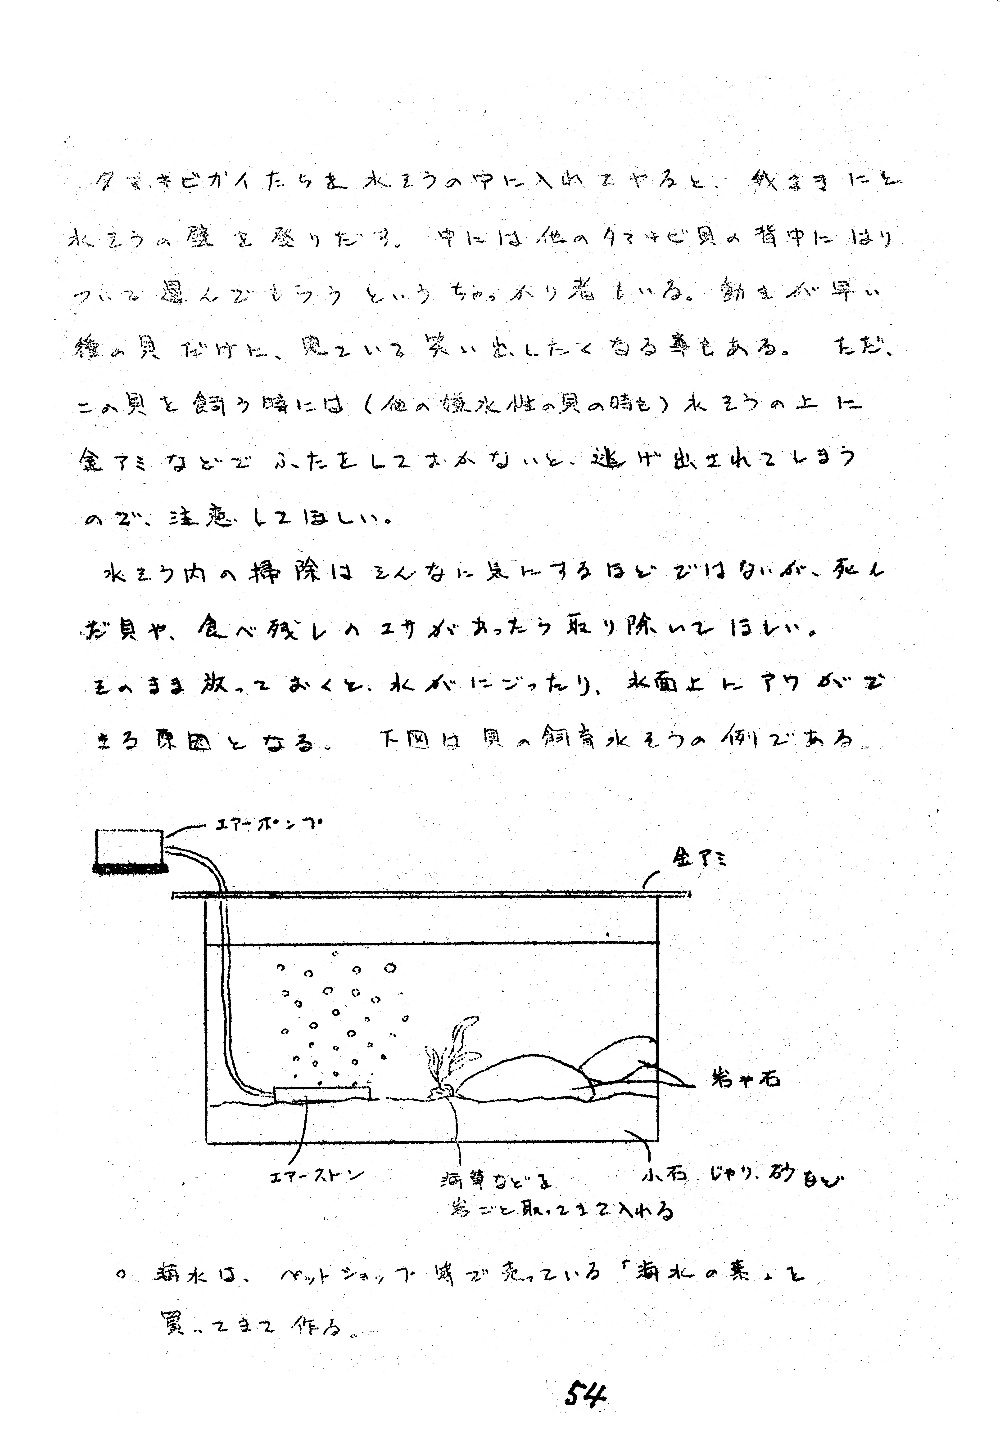 タマキビガイたちを水そうの中に入れてやると、我ままにと
水そうの壁を登りだす。中には他のタマキビ貝の背中にはり
ついて運んでもらうというちゃっかり者もいる。動きが早い
種の貝だけに、見ていて笑い出したくなる事もある。ただ、
この貝を飼う時には（他の嫌水性の貝の時も）水そうの上に
金アミなどでふたをしておかないと、逃げ出されてしまう
ので、注意してほしい。
水そう内の掃除はそんなに気にするほどではないが、死ん
だ貝や、食べ残しのエサがあったら取り除いてほしい。
そのまま放っておくと、水がにごったり、水面上にアワがで
きる原因となる。 下図は貝の飼育水そうの例である。
エアーポンプ
金アミ
岩や石
エアーストン
海草などを
岩ごと取ってきて入れる
小石、じゃり、砂など
○ 海水は、ペットショップ等で売っている「海水の素」を
買ってきて作る。
54